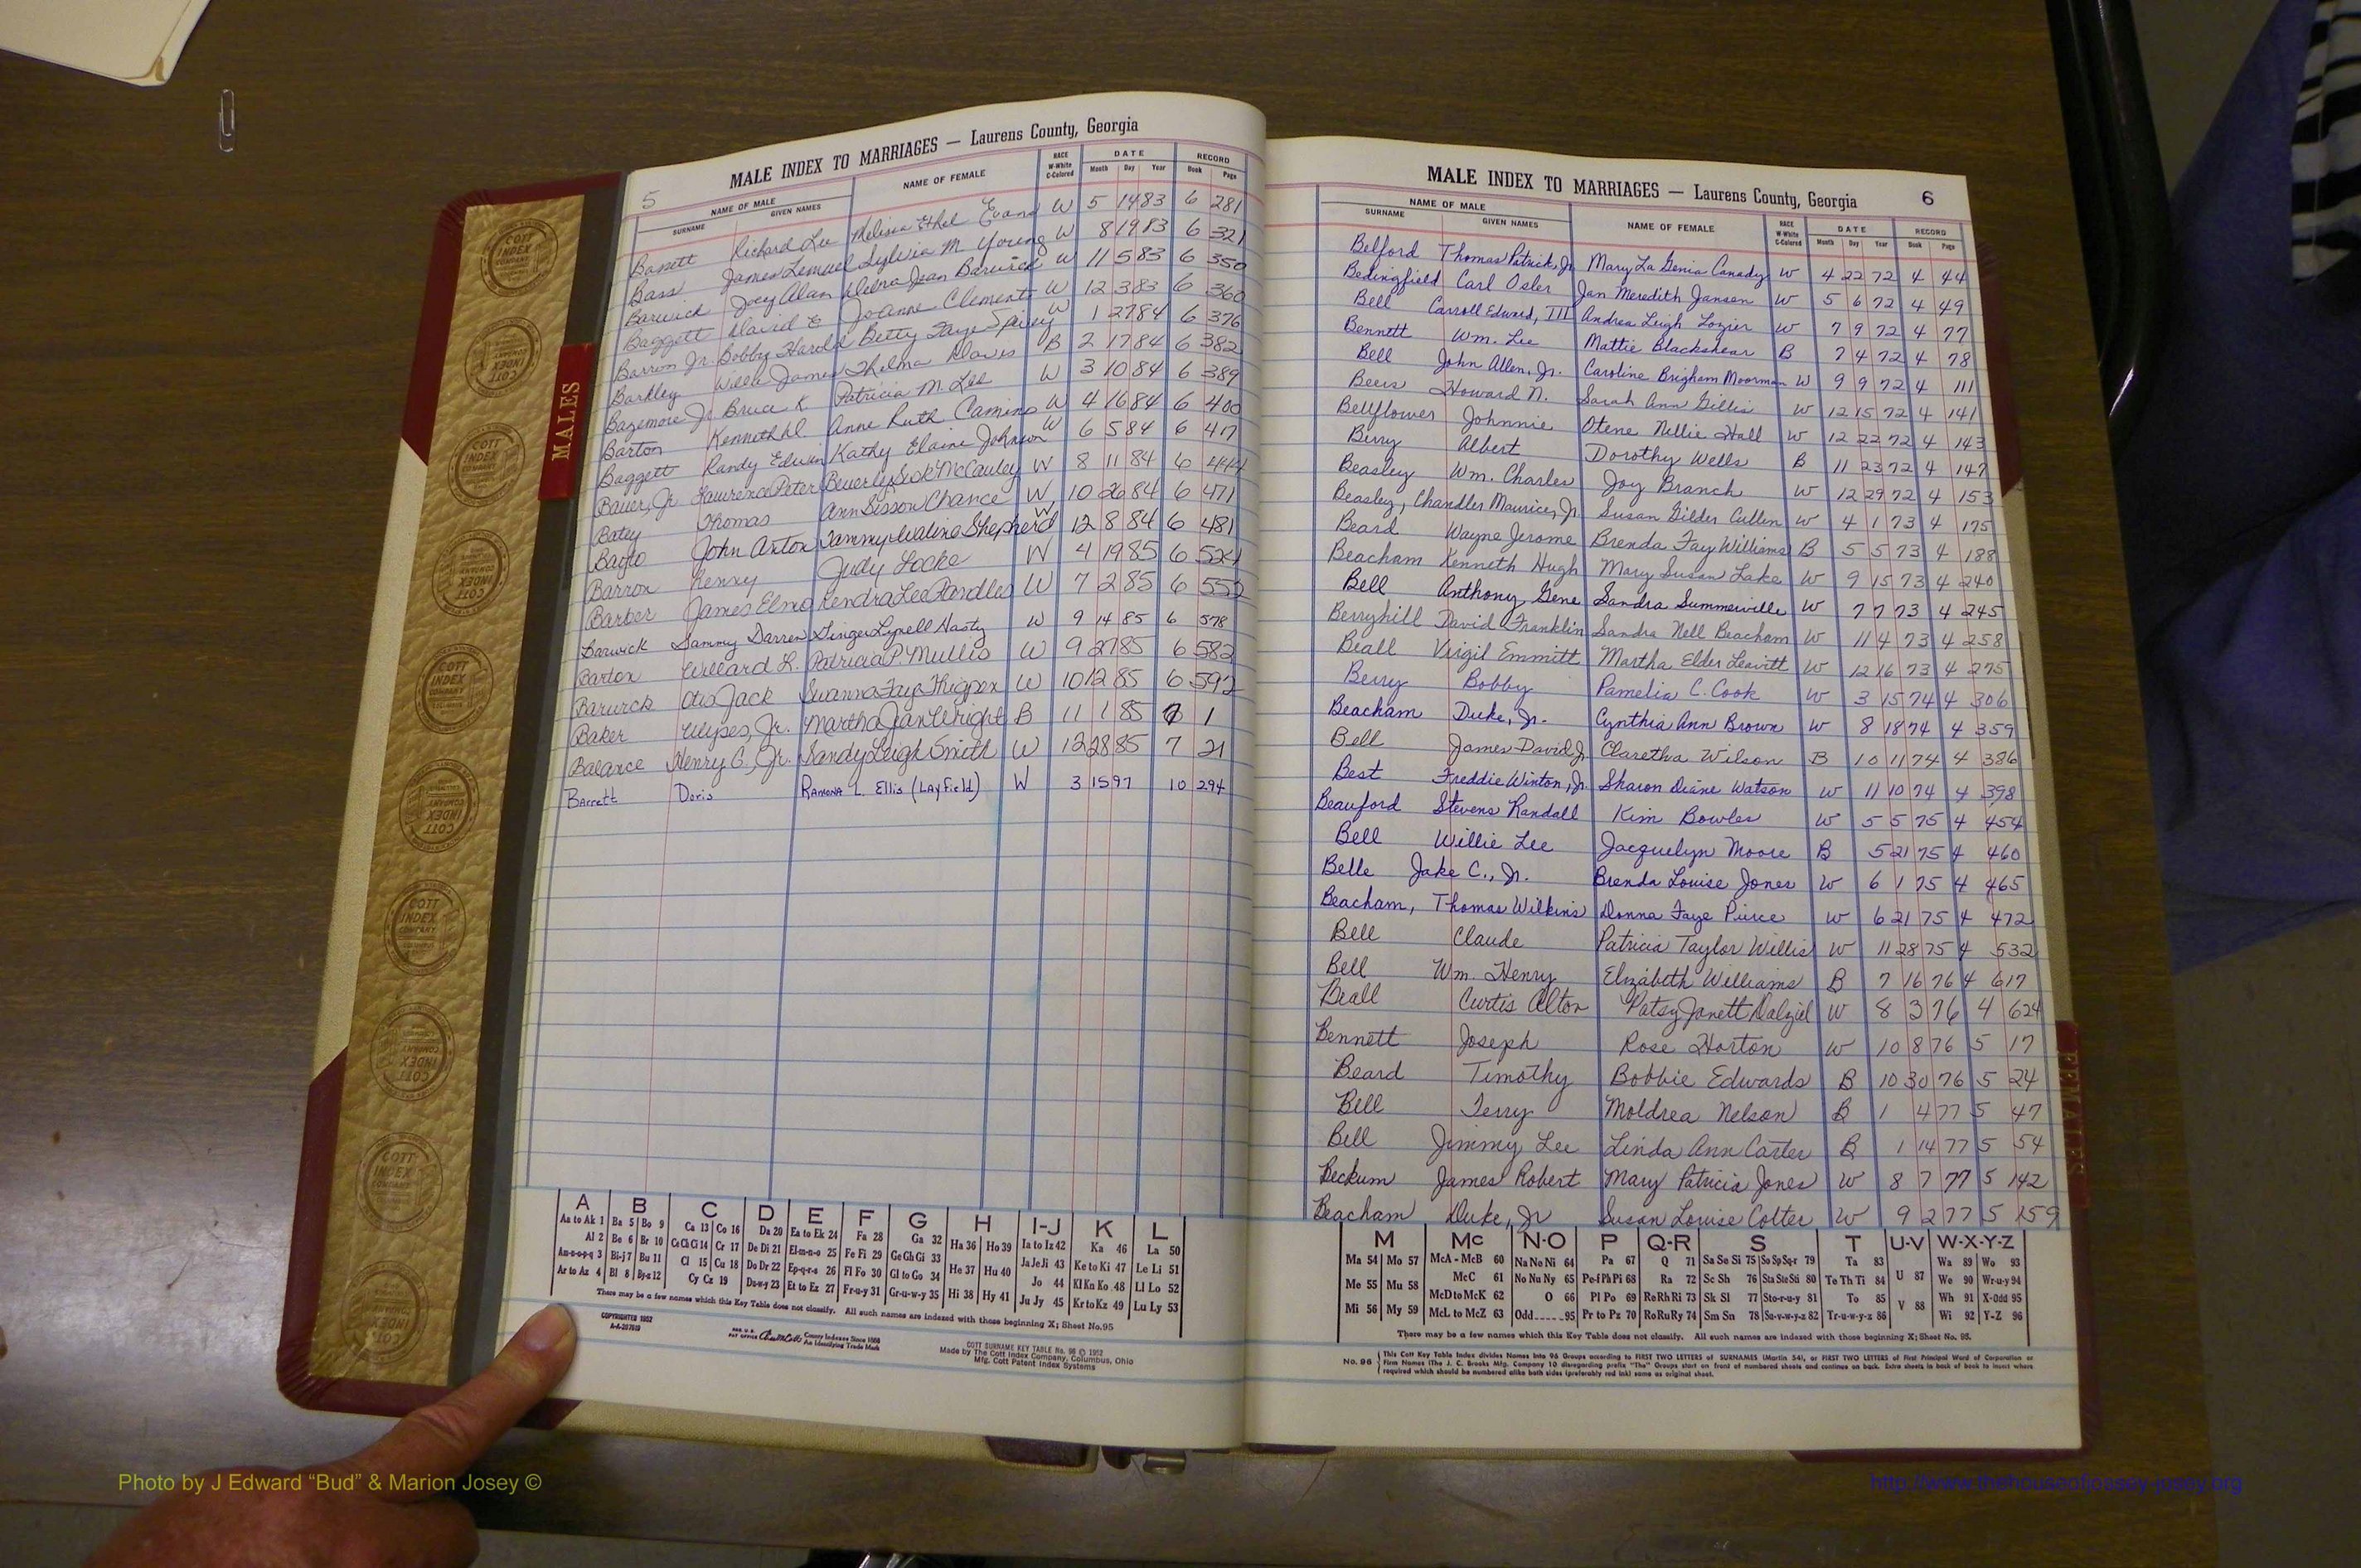 MALE INDEX TO MARRIAGES — Laurens County, Georgia
5
NAME OF MALE
SURNAME GIVEN NAMES
NAME OF FEMALE
RACE W-White C-Colored
DATE
Month Day Year
RECORD
Book Page
Richard Lee Melissa Ethel Evans W 5 14 83 6 281
Bass James Lemuel Sylvia M. Young W 8 19 83 6 321
Barwick Joey Alan Debra Jean Barwick W 11 5 83 6 350
Baggett David E Jo Anne Clements W 12 3 83 6 360
Barron Jr. Bobby Harold Betty Faye Spivey W 1 27 84 6 376
Barkley Willie James Thelma Davis B 2 17 84 6 382
Bazemore Jr Bruce K Patricia M. Lee W 3 10 84 6 389
Barton Kenneth Anne Ruth Camino W 4 16 84 6 400
Baggett Randy Edwin Kathy Elaine Johnson W 6 5 84 6 417
Bauer, Jr. Lawrence Peter Beverly McCauley W 8 11 84 6 444
Batey Thomas Ann Sisson Chance W 10 26 84 6 471
John Anton Tammy Shepherd W 12 8 84 6 481
Barron Kenny Judy Locke W 4 19 85 6 524
Barber James Elmo Kendra Lee Randles W 7 2 85 6 552
Barwick Sammy Darren Ginger Lynell Nasty W 9 14 85 6 578
Barton Willard L. Patricia P. Mullis W 9 27 85 6 582
Barwick Otis Jack Swanna Faye Thigpen W 10 12 85 6 592
Baker Ulyses, Jr. Martha Jan Wright B 11 1 85 7 1
Balance Henry G., Jr. Sandy Leigh Smith W 12 28 85 7 21
Barrett Doris Ramona L. Ellis (Layfield) W 3 15 97 10 294
A B C D E F G H I-J K L
Aa to Ak 1 Ba 5 Bo 9 Ca 13 Co 16 Da 20 Ea to Ek 24 Fa 28 Ga 32 Ha 36 Ho 39 Ia to Iz 42 Ka 46 La 50
Al 2 Be 6 Br 10 Ce Ch Ci 14 Cr 17 De Di 21 El-m-n-o 25 Fe Fi 29 Ge Gh Gi 33 He 37 Hu 40 Ja Je Ji 43 Ke to Ki 47 Le Li 51
Am-n-o-p-q 3 Bi-j 7 Bu 11 Cl 15 Cu 18 Do Dr 22 Ep-q-r-s 26 Fl Fo 30 Gl to Go 34 Hi 38 Hy 41 Jo 44 Kl Kn Ko 48 Ll Lo 52
Ar to Az 4 Bl 8 By-z 12 Cy Cz 19 Du-w-y 23 Et to Ez 27 Fr-u-y 31 Gr-u-w-y 35 Ju Jy 45 Kr to Kz 49 Lu Ly 53
There may be a few names which this Key Table does not classify. All such names are indexed with those beginning X; Sheet No. 95
COPYRIGHTED 1952
County Indexes Since 1888
An Identifying Trade Mark
COTT SURNAME KEY TABLE No. 96 © 1952
Made by The Cott Index Company, Columbus, Ohio
Mfg. Cott Patent Index Systems
MALES
COTT INDEX COMPANY
MALE INDEX TO MARRIAGES — Laurens County, Georgia 6
NAME OF MALE
SURNAME GIVEN NAMES
NAME OF FEMALE
RACE W-White C-Colored
DATE
Month Day Year
RECORD
Book Page
Belford Thomas Patrick, Jr. Mary La Genia Canady W 4 22 72 4 44
Bedingfield Carl Osler Jan Meredith Jansen W 5 6 72 4 49
Bell Carroll Edward, III Andrea Leigh Lozier W 7 9 72 4 77
Bennett Wm. Lee Mattie Blackshear B 7 4 72 4 78
Bell John Allen, Jr. Caroline Brigham Moorman W 9 9 72 4 111
Beers Howard N. Sarah Ann Gillis W 12 15 72 4 141
Bellflower Johnnie Otene Nellie Hall W 12 22 72 4 143
Berry Albert Dorothy Wells B 11 23 72 4 147
Beasley Wm. Charles Joy Branch W 12 29 72 4 153
Beasley, Chandler Maurice, Jr. Susan Gilder Cullen W 4 1 73 4 175
Beard Wayne Jerome Brenda Fay Williams B 5 5 73 4 188
Beacham Kenneth Hugh Mary Susan Lake W 9 15 73 4 240
Bell Anthony Gene Sandra Summerville W 7 7 73 4 245
Berryhill David Franklin Sandra Nell Beacham W 11 4 73 4 258
Beall Virgil Emmitt Martha Elder Leavitt W 12 16 73 4 275
Berry Bobby Pamelia C. Cook W 3 15 74 4 306
Beacham Duke, Jr. Cynthia Ann Brown W 8 18 74 4 359
Bell James David Jr Claretha Wilson B 10 11 74 4 386
Best Freddie Winton, Jr. Sharon Diane Watson W 11 10 74 4 398
Beauford Stevens Randall Kim Bowles W 5 5 75 4 454
Bell Willie Lee Jacquelyn Moore B 5 21 75 4 460
Belle Jake C., Jr. Brenda Louise Jones W 6 1 75 4 465
Beacham, Thomas Wilkins Donna Faye Pierce W 6 21 75 4 472
Bell Claude Patricia Taylor Willis W 11 28 75 4 532
Bell Wm. Henry Elizabeth Williams B 7 16 76 4 617
Beall Curtis Alton Patsy Janett Dalziel W 8 3 76 4 624
Bennett Joseph Rose Horton W 10 8 76 5 17
Beard Timothy Bobbie Edwards B 10 30 76 5 24
Bell Terry Moldrea Nelson B 1 4 77 5 47
Bell Jimmy Lee Linda Ann Carter B 1 14 77 5 54
Beckum James Robert Mary Patricia Jones W 8 7 77 5 142
Beacham Duke, Jr Susan Louise Colter W 9 2 77 5 159
M Mc N-O P Q-R S T U-V W-X-Y-Z
Ma 54 Mo 57 McA - McB 60 Na Ne Ni 64 Pa 67 Q 71 Sa Se Si 75 So Sp Sq-r 79 Ta 83 U 87 Wa 89 Wo 93
Me 55 Mu 58 McC 61 No Nu Ny 65 Pe-f Ph Pi 68 Ra 72 Sc Sh 76 Sta Ste Sti 80 Te Th Ti 84 We 90 Wr-u-y 94
McD to McK 62 O 66 Pl Po 69 Re Rh Ri 73 Sk Sl 77 Sto-r-u-y 81 To 85 V 88 Wh 91 X-Odd 95
Mi 56 My 59 McL to McZ 63 Odd 95 Pr to Pz 70 Ro Ru Ry 74 Sm Sn 78 Su-v-w-y-z 82 Tr-u-w-y-z 86 Wi 92 Y-Z 96
There may be a few names which this Key Table does not classify. All such names are indexed with those beginning X; Sheet No. 95.
No. 96 This Cott Key Table Index divides Names into 96 Groups according to FIRST TWO LETTERS of SURNAMES (Martin 54), or FIRST TWO LETTERS of First Principal Word of Corporation or
Firm Names (The J. C. Brooks Mfg. Company 10 disregarding prefix "The" Groups start on front of numbered sheets and continue on back. Extra sheets in back of book to insert where
required which should be numbered alike both sides (preferably red ink) same as original sheet.
Photo by J Edward “Bud” & Marion Josey ©
http://www.thehouseofjossey-josey.org